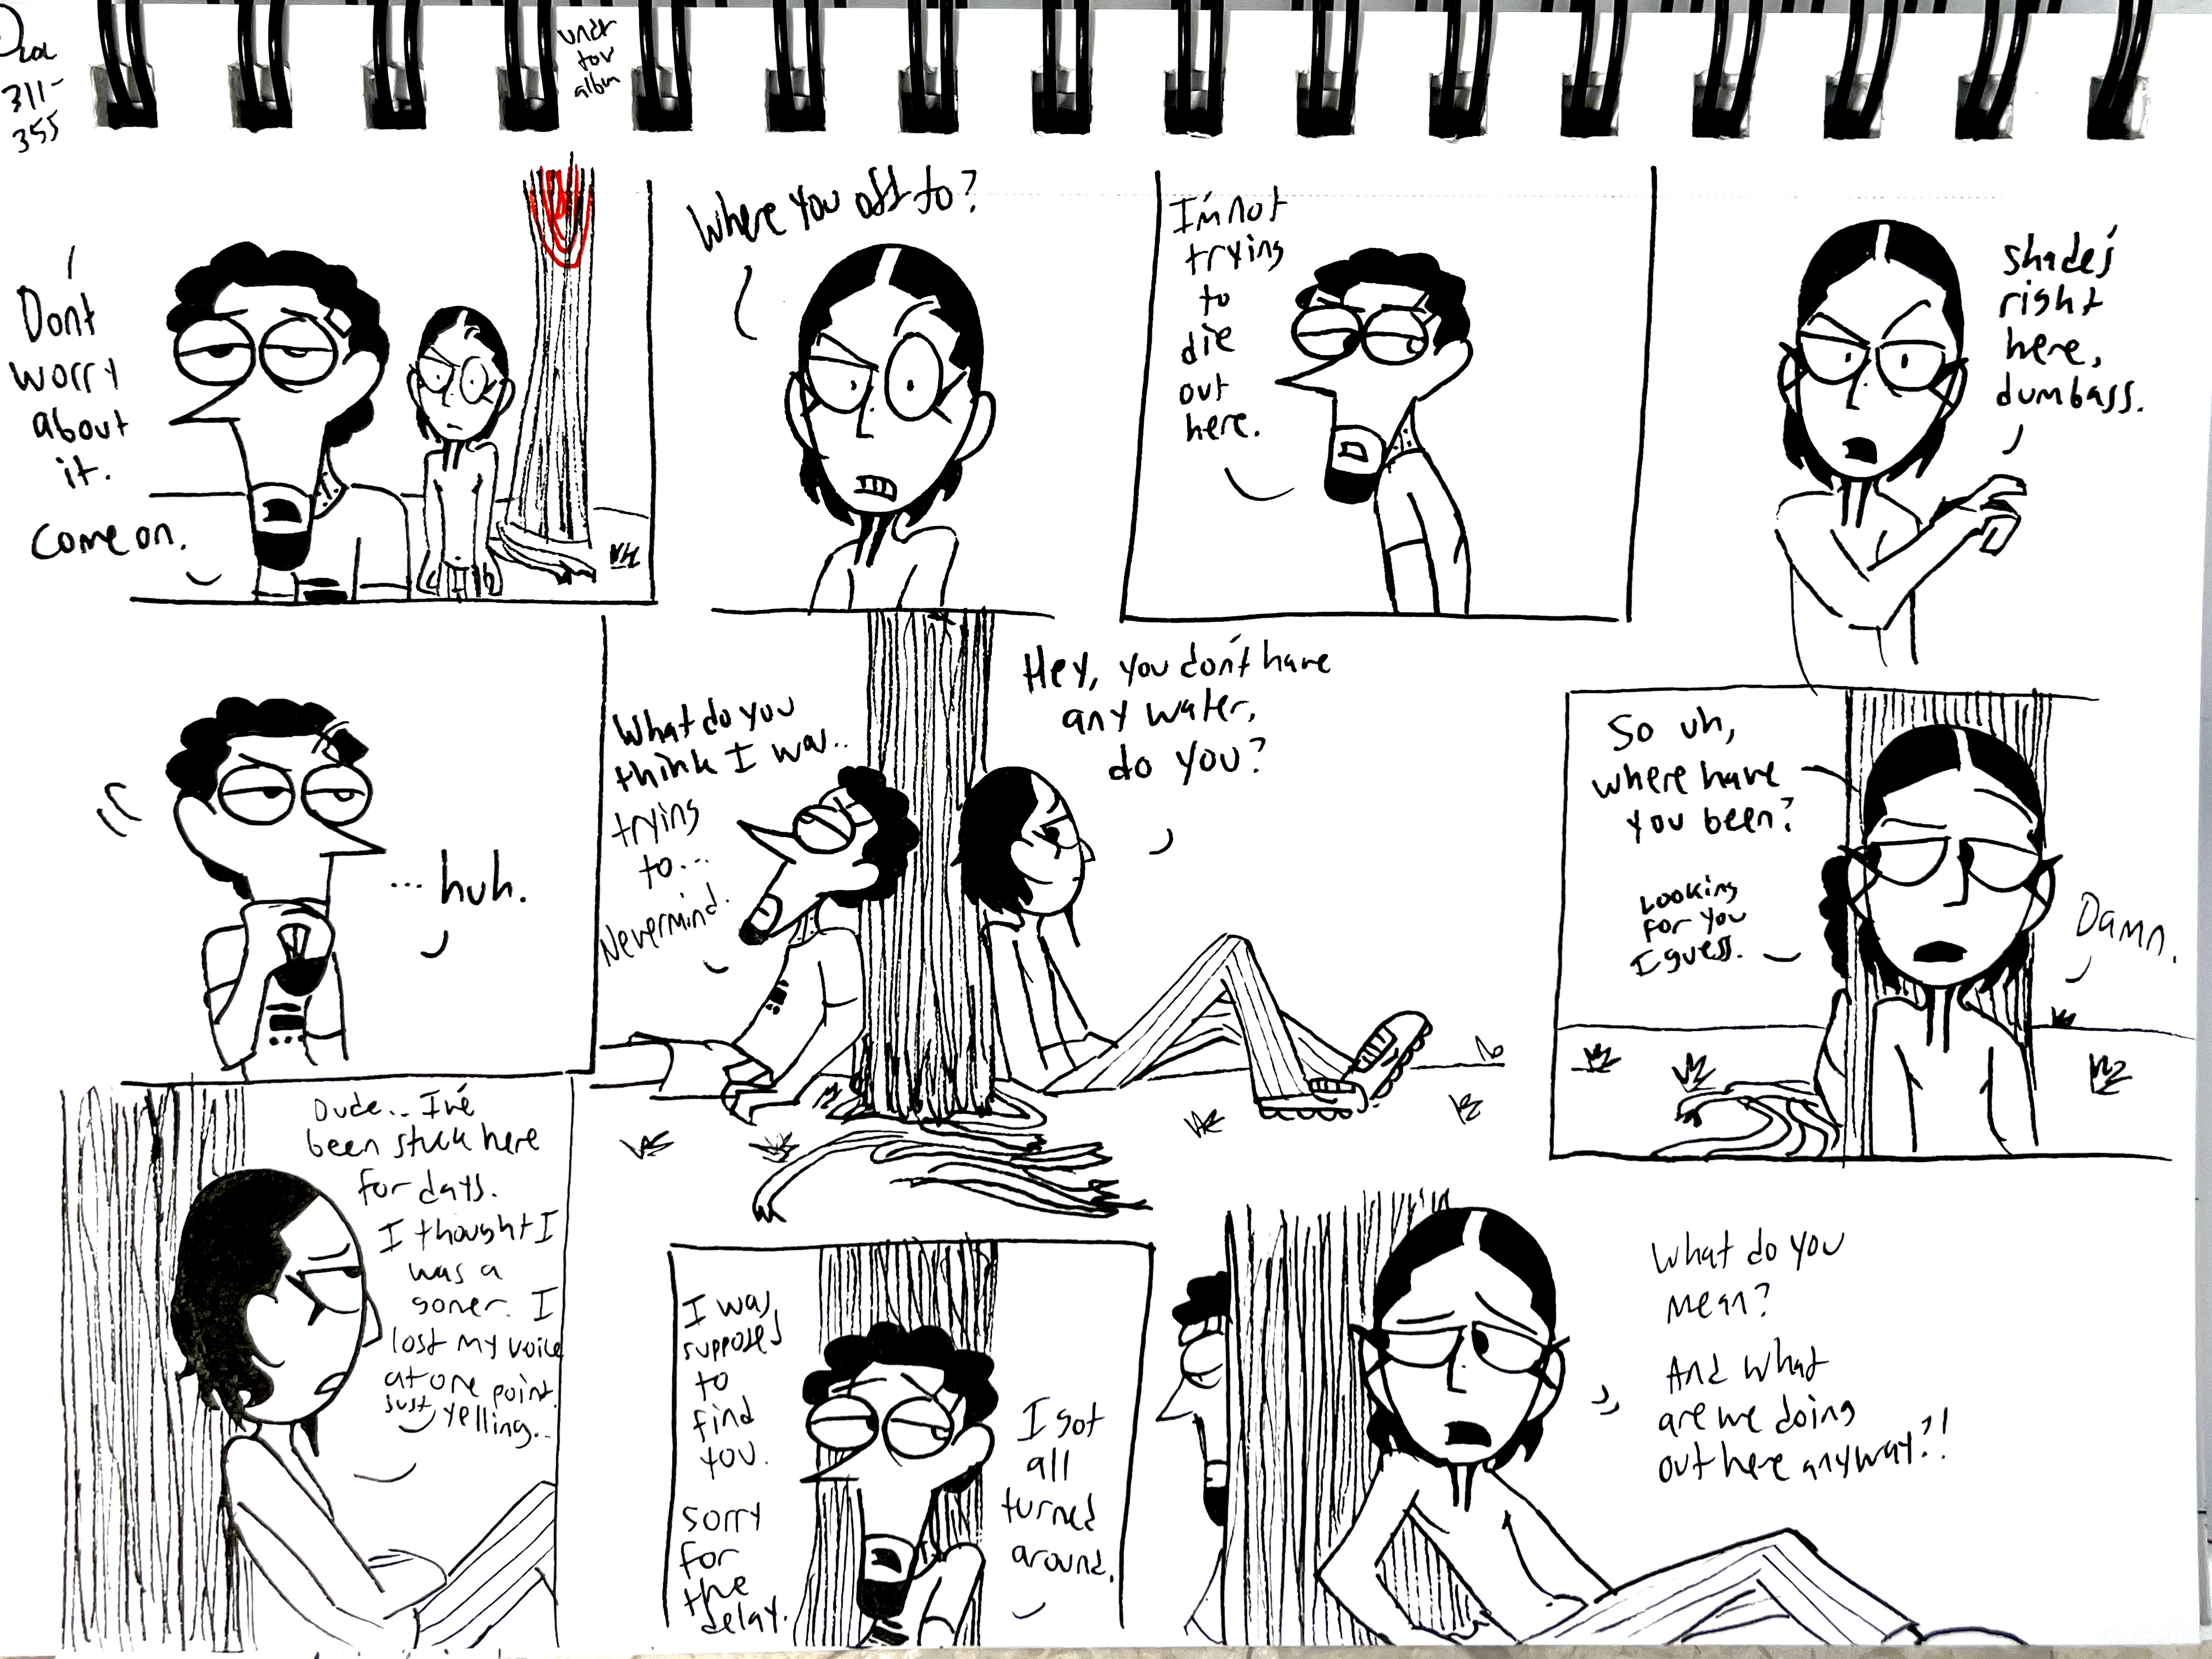 311-
355
Don't
worry
about
it.
Come on.
Where you off to?
I'm not
trying
to
die
out
here.
Shade's
right
here,
dumbass.
... huh.
What do you
think I was..
trying
to...
Nevermind.
Hey, you don't have
any water,
do you?
So uh,
where have
you been?
Looking
for you
I guess.
Damn.
Dude.. I've
been stuck here
for days.
I thought I
was a
goner. I
lost my voice
at one point
just yelling..
I was
supposed
to
find
you.
Sorry
for
the
delay.
I got
all
turned
around.
What do you
mean?
And what
are we doing
out here anyway?!